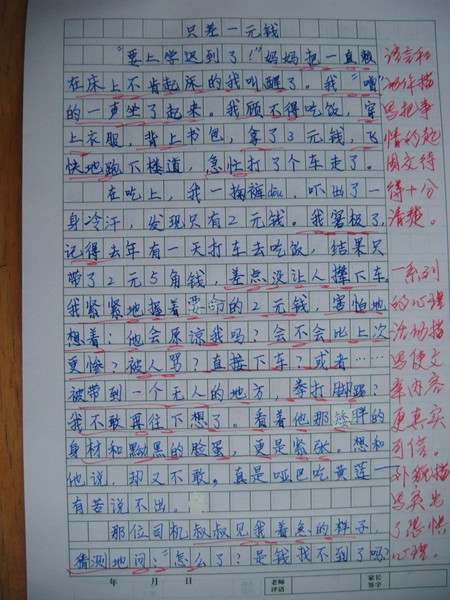 只差一元钱
“要上学迟到了！”妈妈把一直赖
在床上不肯起床的我叫醒了。我“噌”
的一声坐了起来。我顾不得吃饭，穿
上衣服，背上书包，拿了3元钱，飞
快地跑下楼道，急忙打了个车走了。
在吃上，我一掏裤dōu，吓出了一
身冷汗，发现只有2元钱。我窘极了，
记得去年有一天打车去吃饭，结果只
带了2元5角钱，差点没让人撵下车。
我紧紧地握着要命的2元钱，害怕地
想着：他会原谅我吗？会不会比上次
更惨？被人骂？直接下车？或者……
被带到一个无人的地方，拳打脚踢？
我不敢再往下想了。看着他那矮胖的
身材和黝黑的脸蛋，更是紧张。想和
他说，却又不敢。真是哑巴吃黄莲——
有苦说不出。
那位司机叔叔见我着急的样子，
猜测地问：“怎么了？是钱找不到了吗？
年 月 日 老师评语 家长签字
语言和
动作描
写把事
情的起
因交待
得十分
清楚。
一系列
的心理
活动描
写使文
章内容
更真实
可信。
外貌描
写突出
了惧怕
心理。